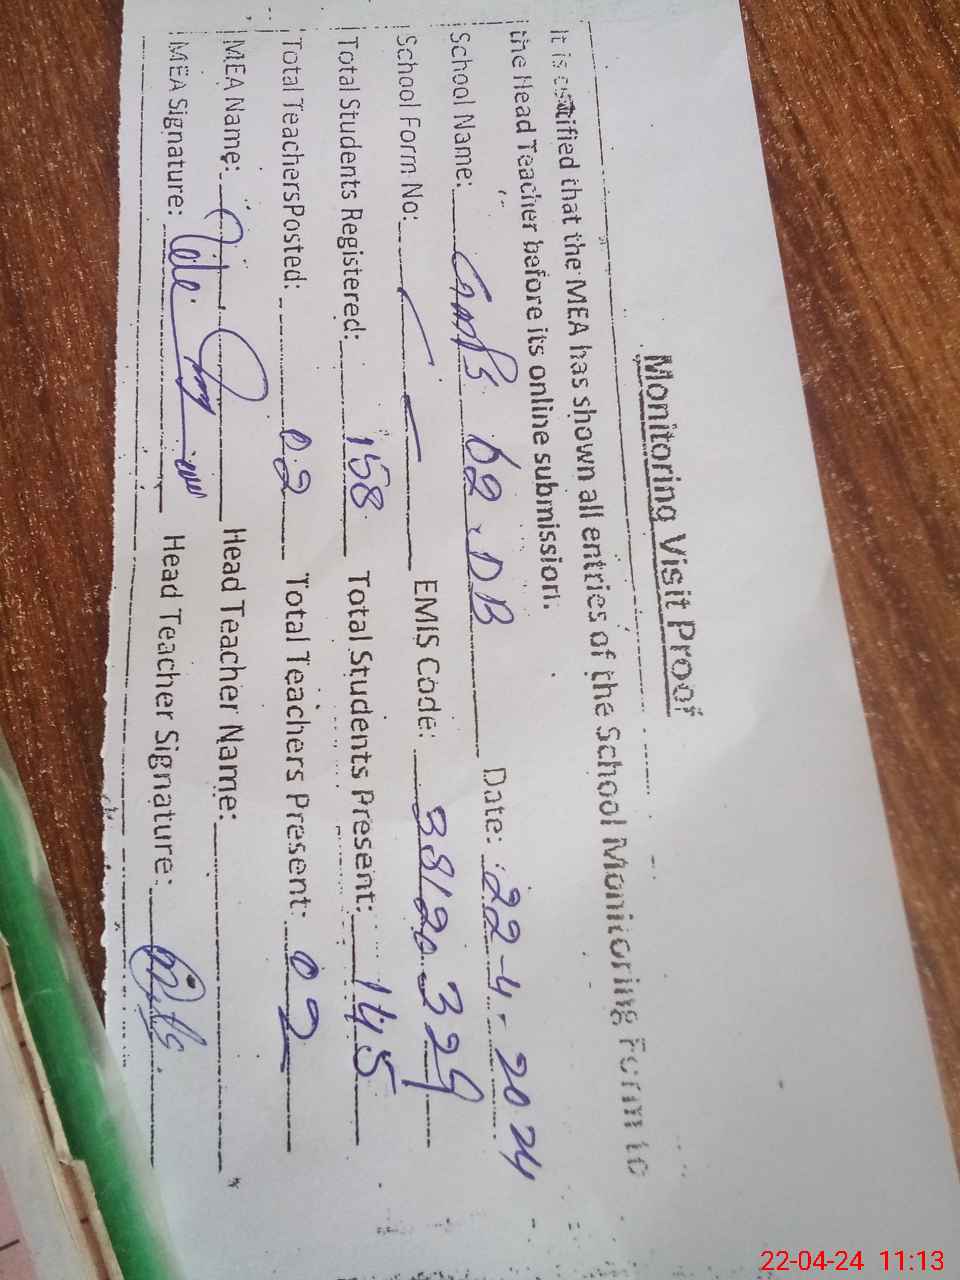 Monitoring Visit Proof
It is certified that the MEA has shown all entries of the School Monitoring Form to
the Head Teacher before its online submission.
School Name: GMPS 62.DB Date: 22-4-2024
School Form No: EMIS Code: 38120329
Total Students Registered: 158 Total Students Present: 145
Total TeachersPosted: 02 Total Teachers Present: 02
MEA Name: Head Teacher Name:
MEA Signature: Head Teacher Signature:
22-04-24 11:13